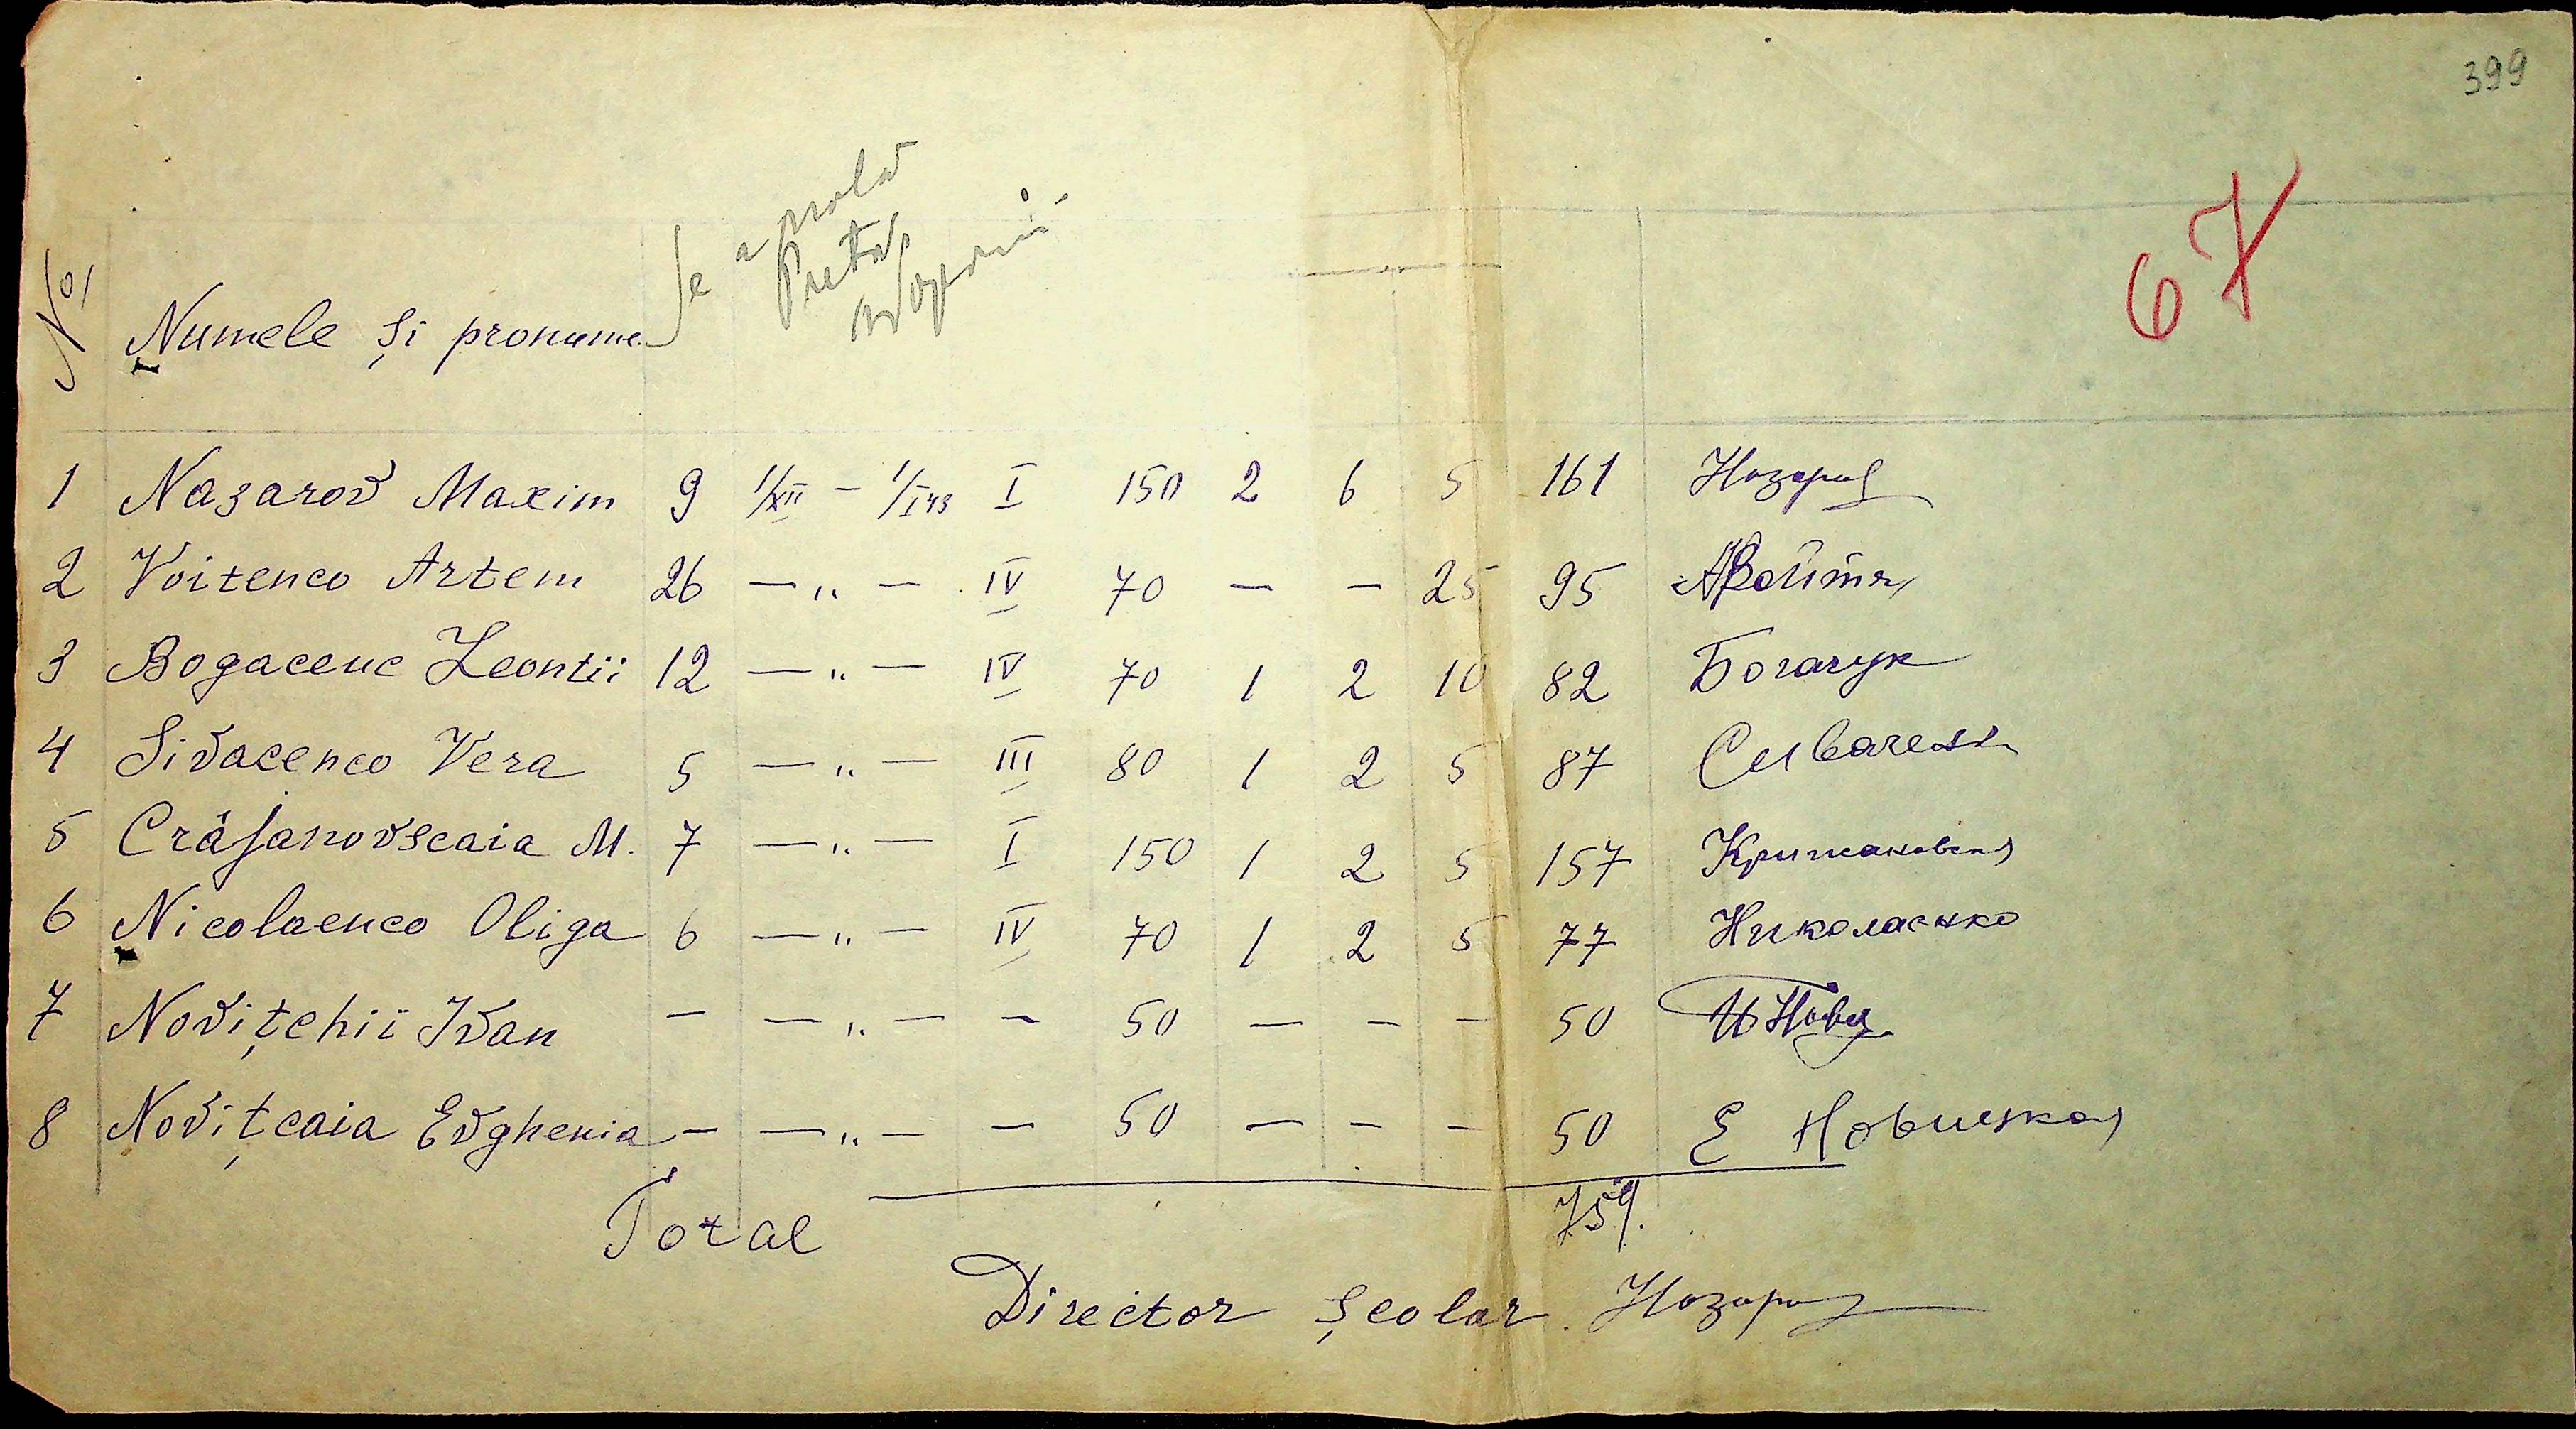 399
67
Se a
No Numele și pronume
1 Nazarov Maxim 9 1/XII - 1/I 43 I 150 2 6 5 161
2 Voitenco Artem 26 — „ — IV 70 — — 25 95
3 Bogaceuc Leontii 12 — „ — IV 70 1 2 10 82 Богачук
4 Sivacenco Vera 5 — „ — III 80 1 2 5 87
5 Crâjanovscaia M. 7 — „ — I 150 1 2 5 157
6 Nicolaenco Oliga 6 — „ — IV 70 1 2 5 77 Николаенко
7 Novițchii Ivan — — „ — — 50 — — — 50
8 Novițcaia Evghenia — — „ — — 50 — — — 50 Е Новицкая
Total 759.
Director școlar